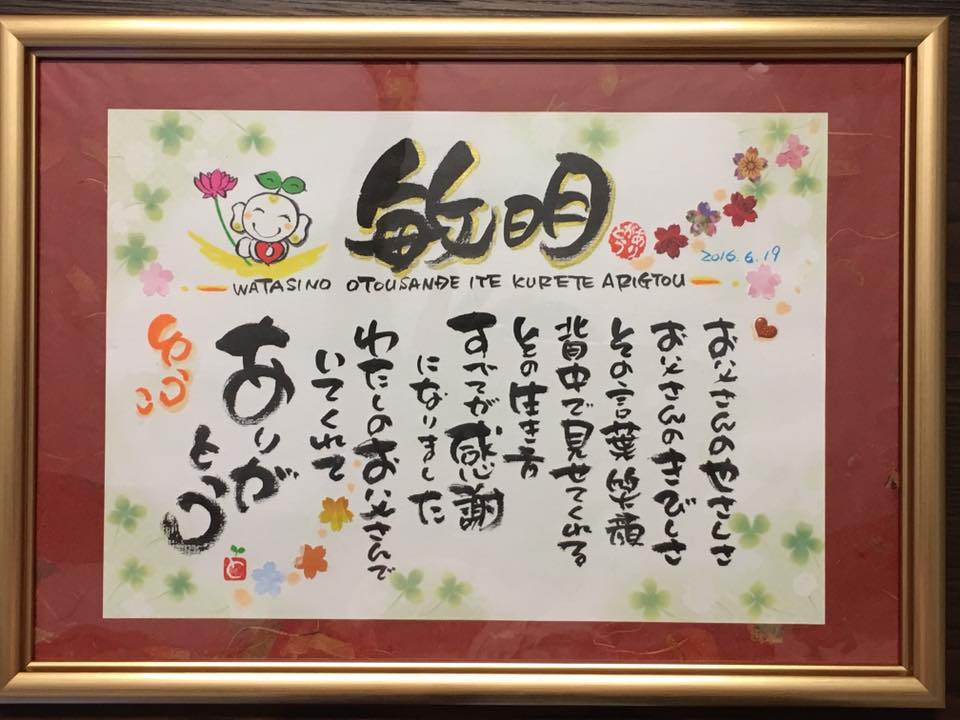 敏明
2016.6.19
WATASINO OTOUSANDE ITE KURETE ARIGTOU
お父さんのやさしさ
お父さんのきびしさ
その言葉笑顔
背中で見せてくれる
その生き方
すべてが感謝
になりました
わたしのお父さんで
いてくれて
ありが
とう